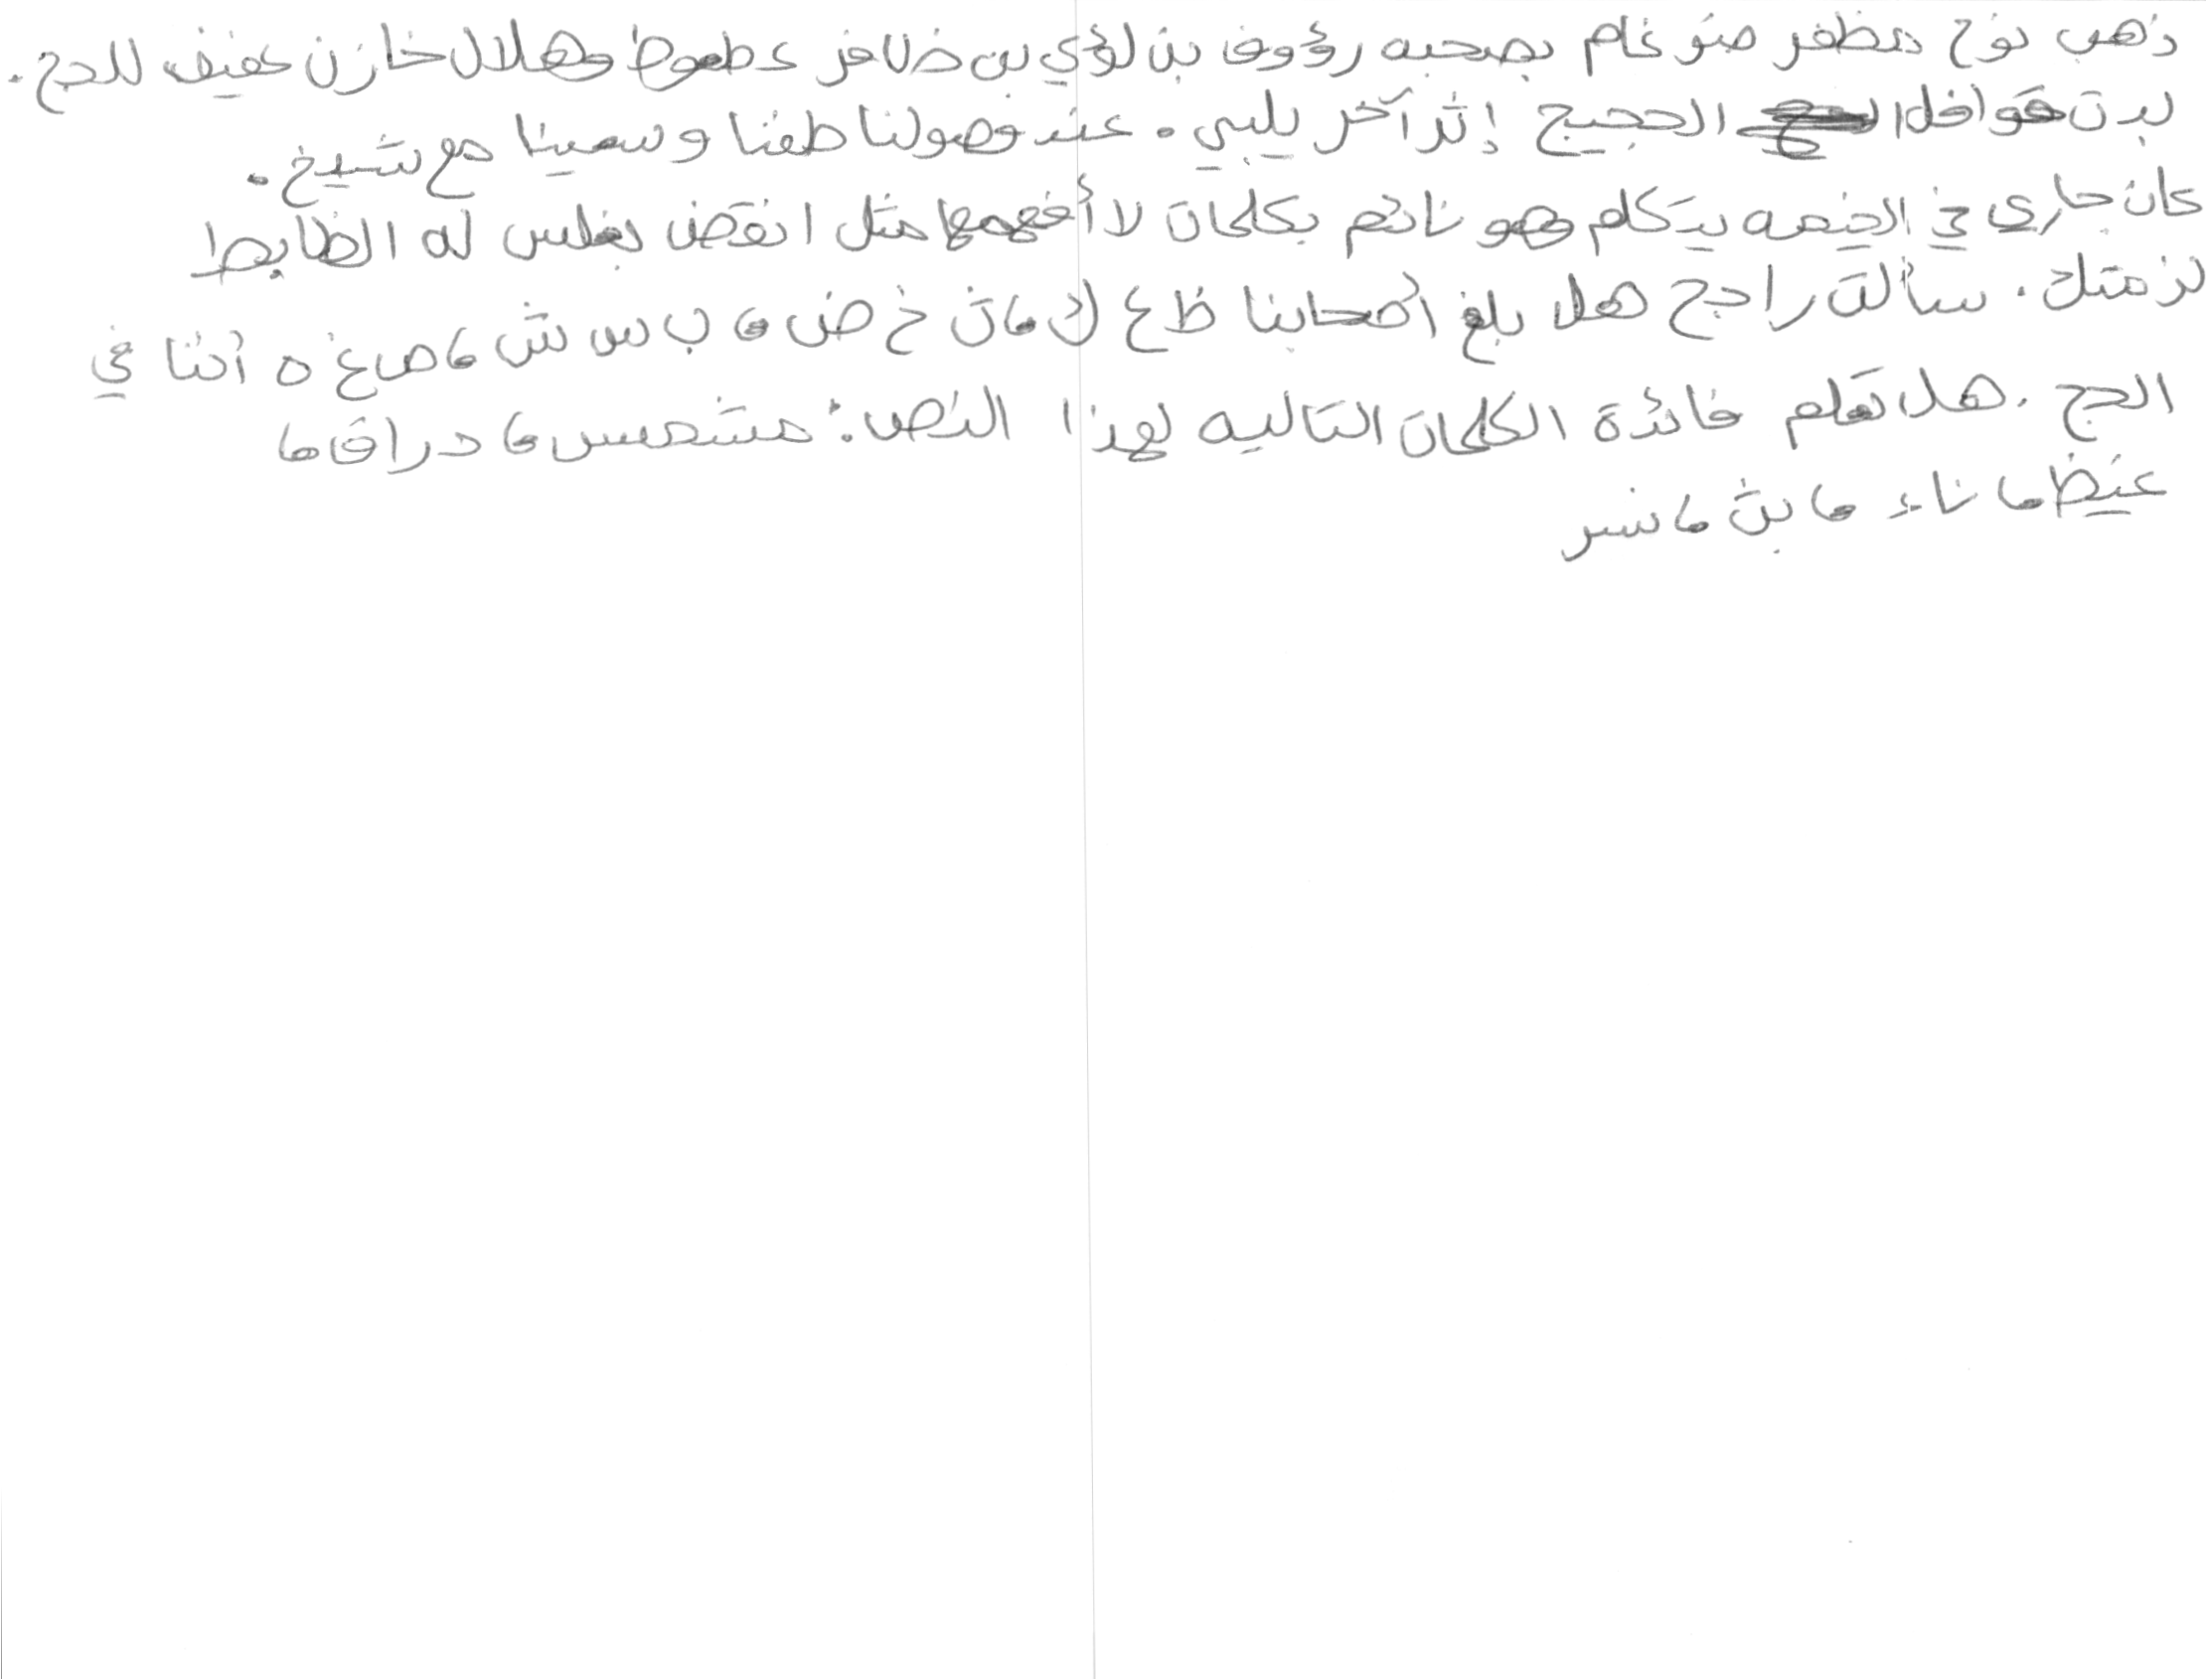 ذهب نوح مظفر ضرغام بصحبه رؤوف بن لؤي بن ظافر عطعوط وهلال خازن عفيف للحج.
بدت قوافل الحجيج إثر آخر يلبي. عند وصولنا طفنا وسعينا مع شيخ.
كان جاري في الخيمه يتكلم وهو نائم بكلمات لا أفهمها مثل انقض بغلس له الظابط
لزمتك. سألت راجح هل بلغ أصحابنا ظ ع ك ما ث خ ض ق ب س ش ما ص غ ه أننا في
الحج. هل تعلم فائدة الكلمات التاليه لهذا النص: مشمس ما دراق ها
غيظ ما ناء ما بث ما نسر